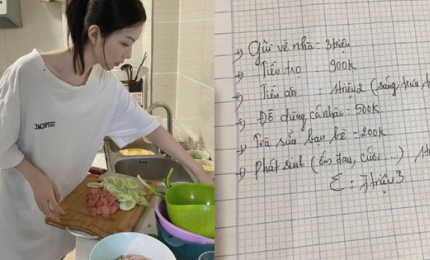 Gửi về nhà: 3 triệu
Tiền trọ : 900k
Tiền ăn : 1 triệu 2 (sáng, trưa,
Đồ dùng cá nhân: 500k
Trà sữa bạn bè: 200k
Phát sinh (ốm đau, cưới ...)
Σ : 7 triệu 3